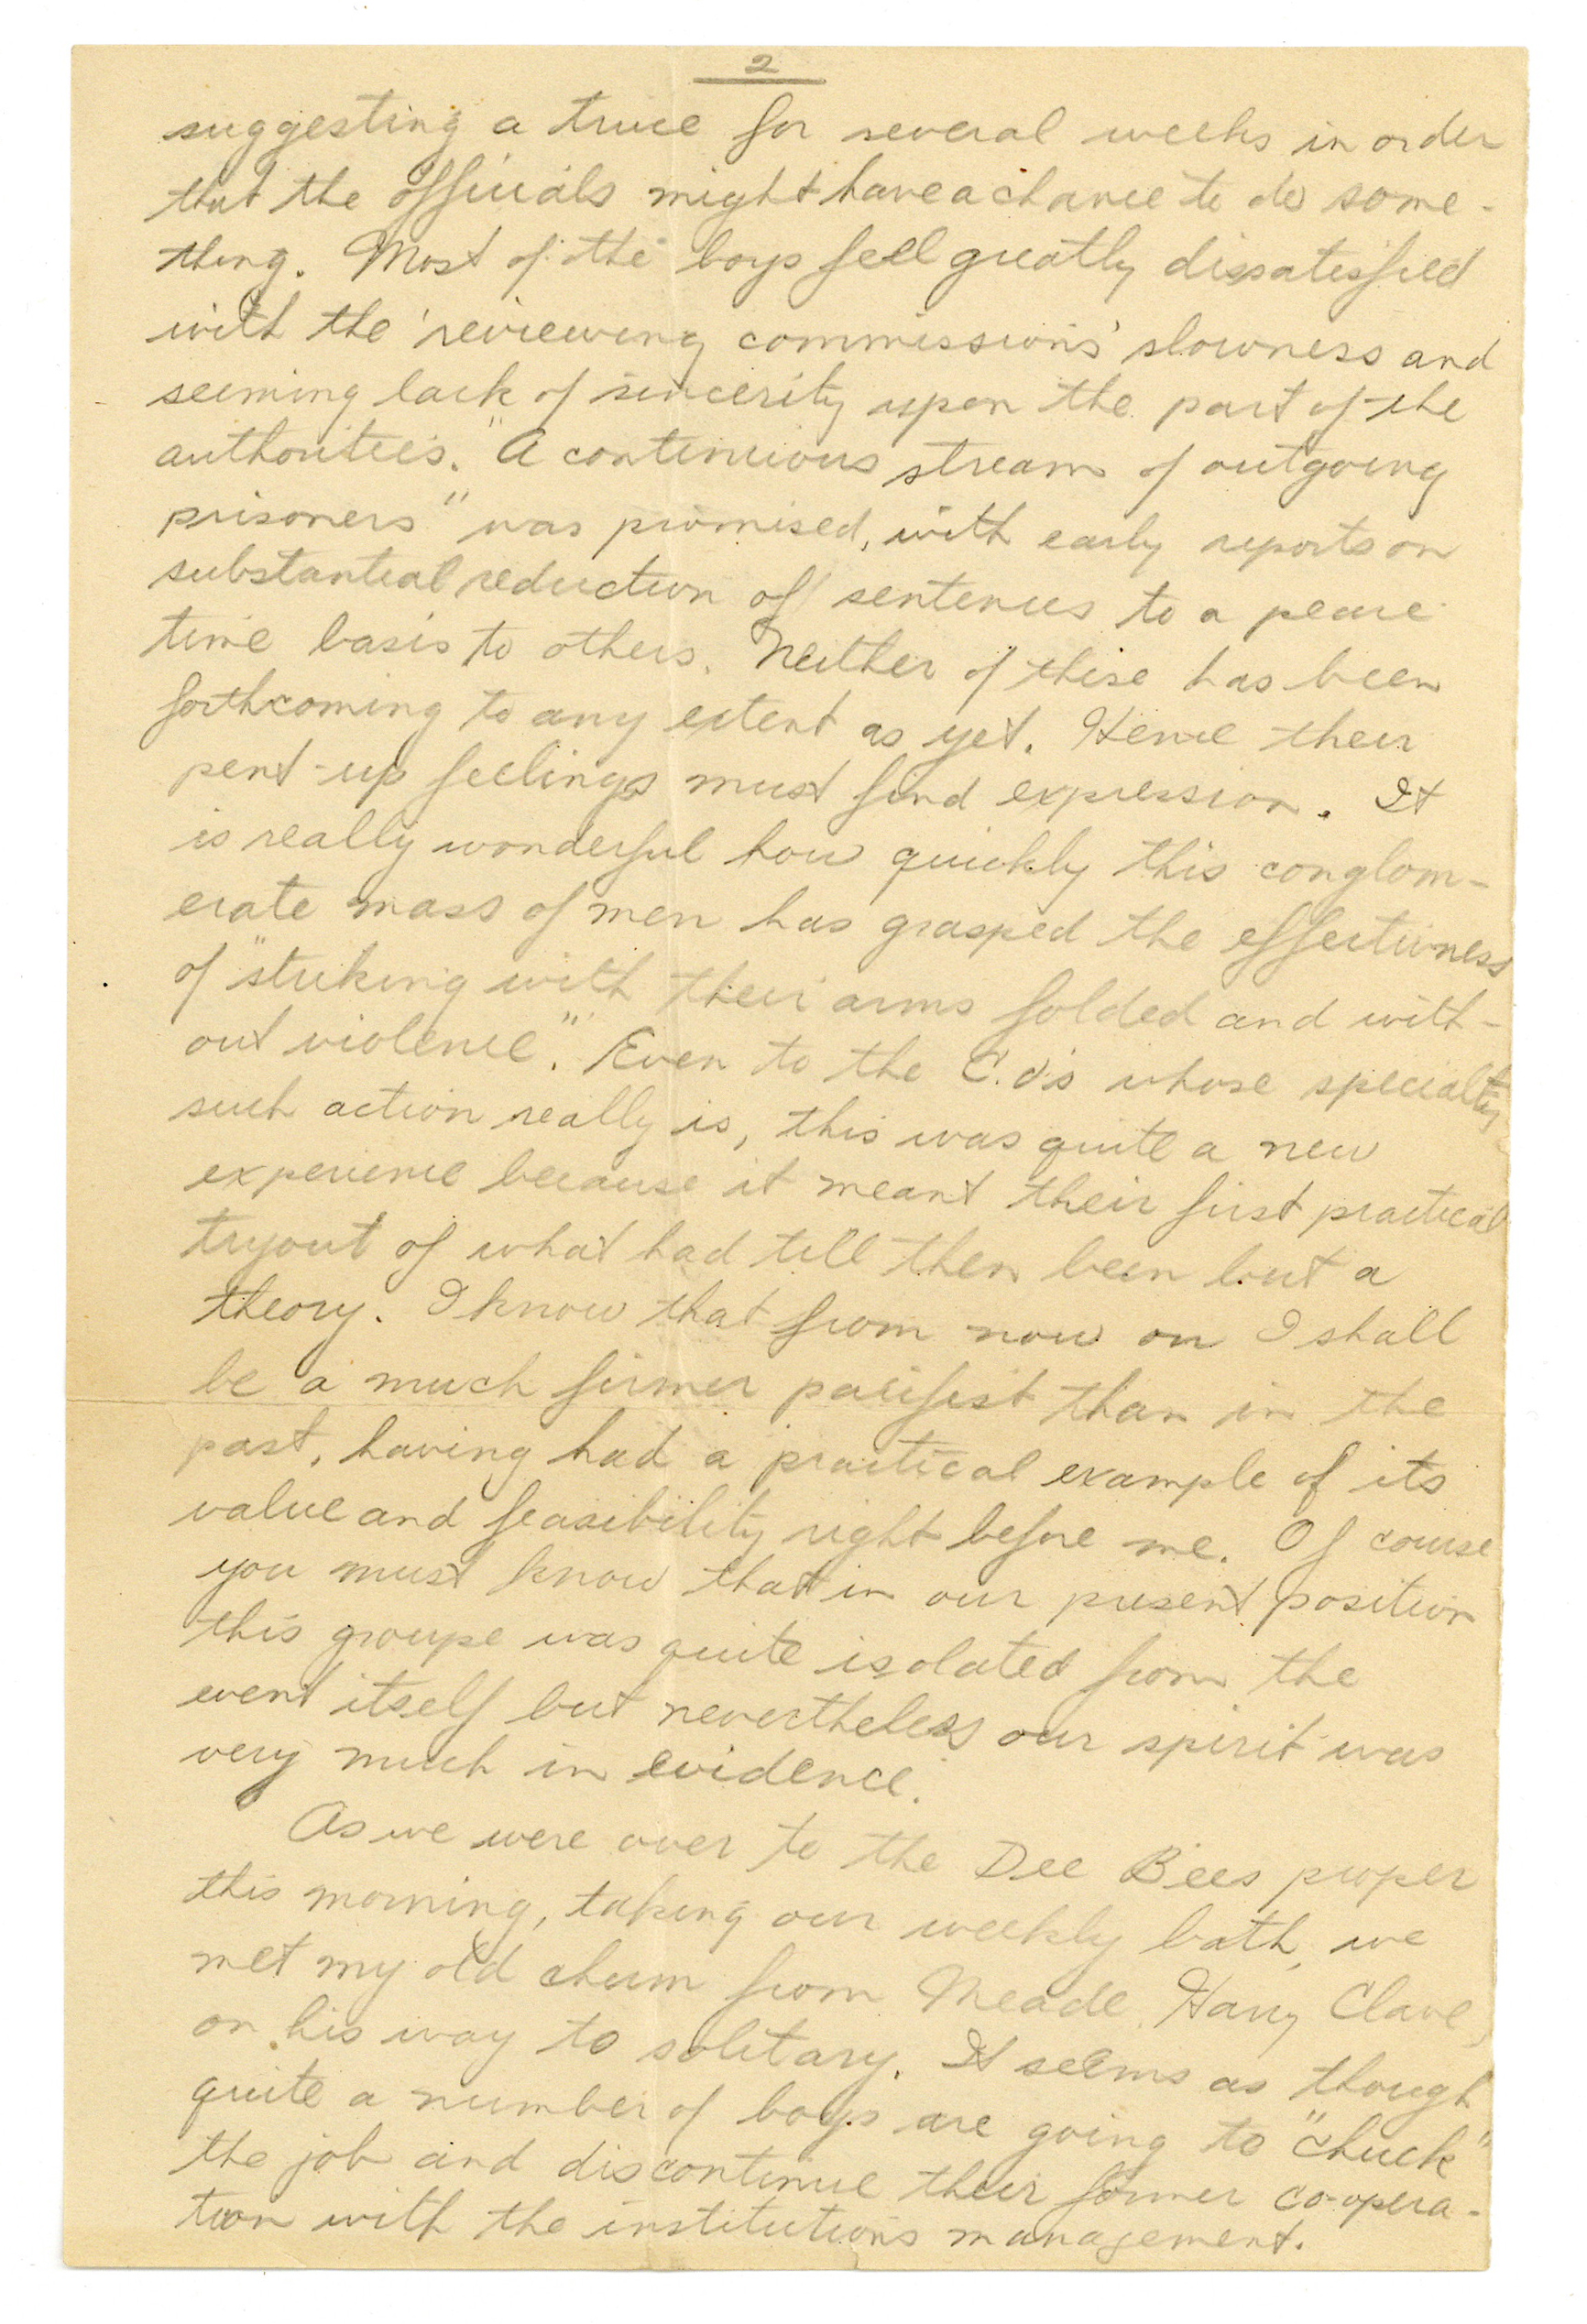 2
suggesting a truce for several weeks in order
that the officials might have a chance to do some-
thing. Most of the boys feel greatly dissatisfied
with the 'reviewing commissions' slowness and
seeming lack of sincerity upon the part of the
authorities. "A continuous stream of outgoing
prisoners" was promised, with early reports on
substantial reduction of sentences to a peace
time basis to others. Neither of these has been
forthcoming to any extent as yet. Hence their
pent-up feelings must find expression. It
is really wonderful how quickly this conglom-
erate mass of men has grasped the effectivness
of "striking with their arms folded and with-
out violence". Even to the C.O's whose specialty
such action really is, this was quite a new
experience because it meant their first practical
tryout of what had till then been but a
theory. I know that from now on I shall
be a much firmer pacifist than in the
past, having had a practical example of its
value and feasibility right before me. Of course
you must know that in our present position
this groupe was quite isolated from the
event itself but nevertheless our spirit was
very much in evidence.
As we were over to the Dee Bees proper
this morning, taking our weekly bath, we
met my old chum from Meade, Harry Clave,
on his way to solitary. It seems as though
quite a number of boys are going to "chuck"
the job and discontinue their former co-opera-
tion with the institution's management.